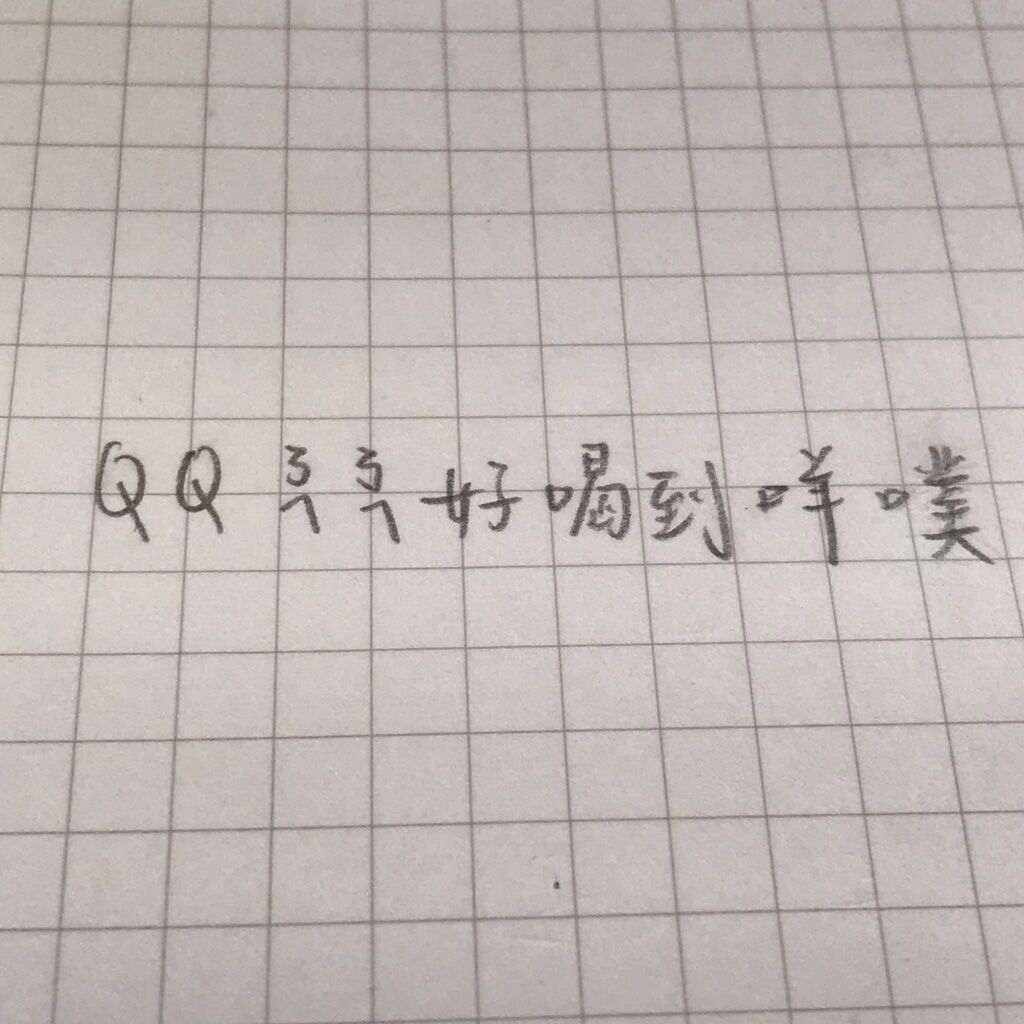 QQㄋㄟㄋㄟ好喝到咩噗